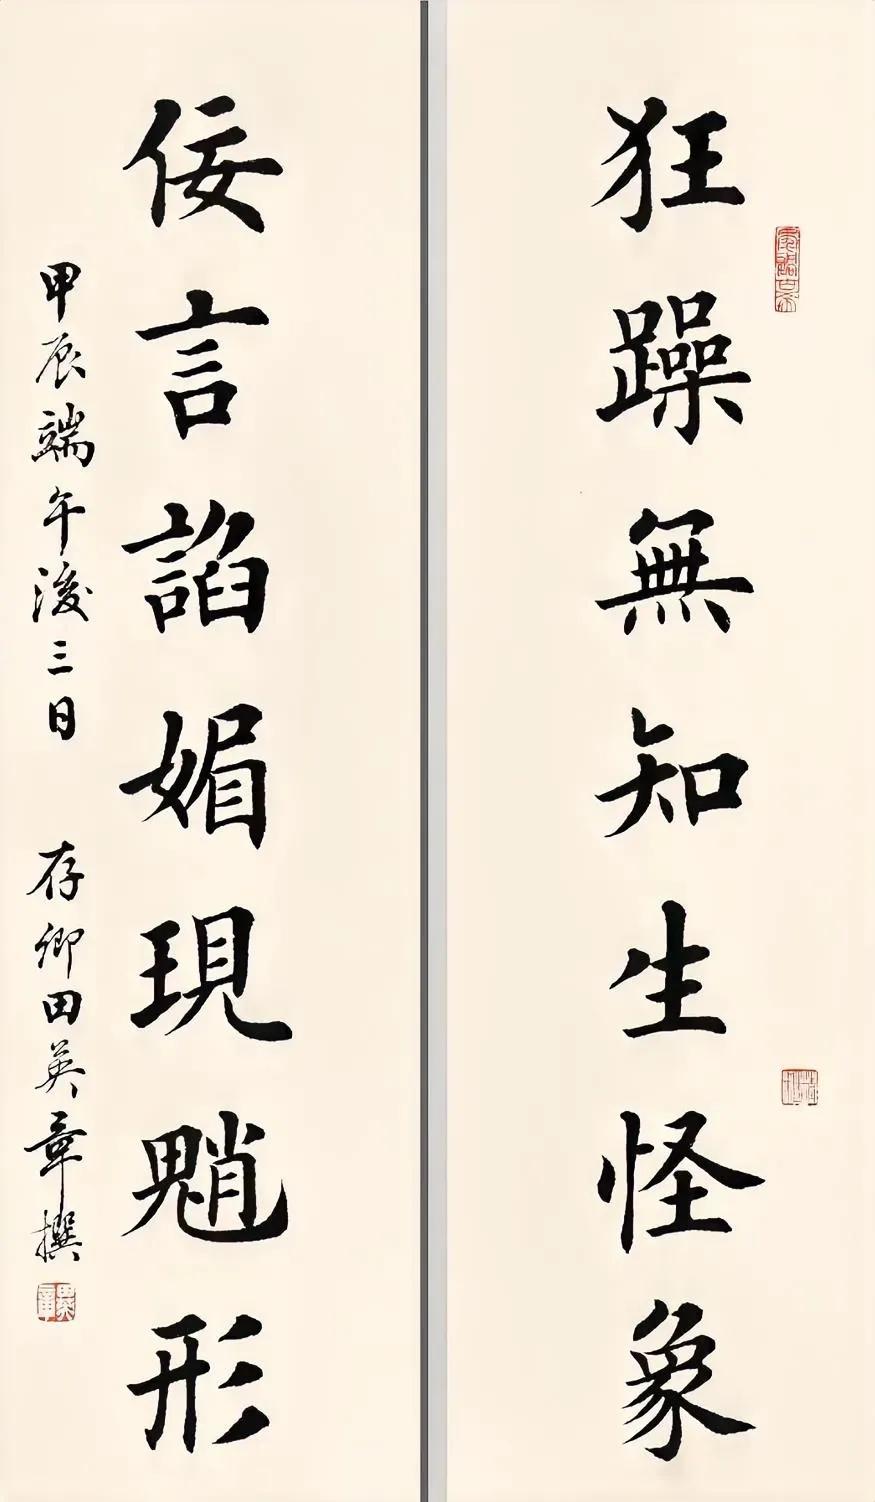 狂躁無知生怪象
佞言諂媚現魈形
甲辰端午後三日 存卿田英章撰